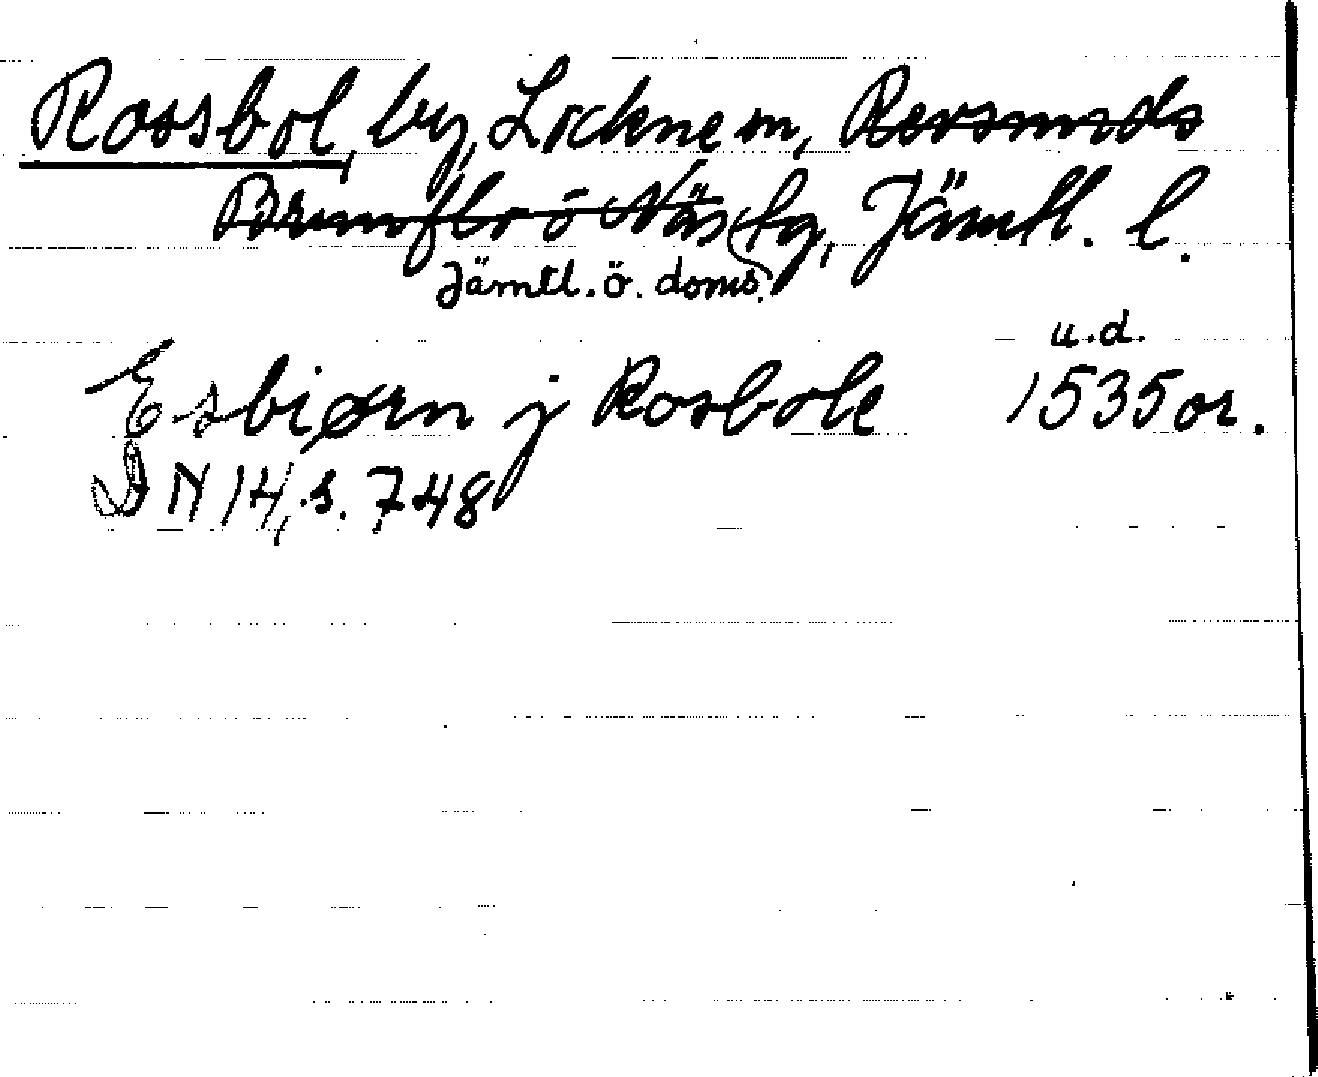 Rossbol, by, Lockne sn, Revsunds
Brunflo o Näs tg, Jämtl. l.
Jämtl. ö. doms.
u.d.
Esbiørn j Rosbole 1535 or.
DN 14, s. 748